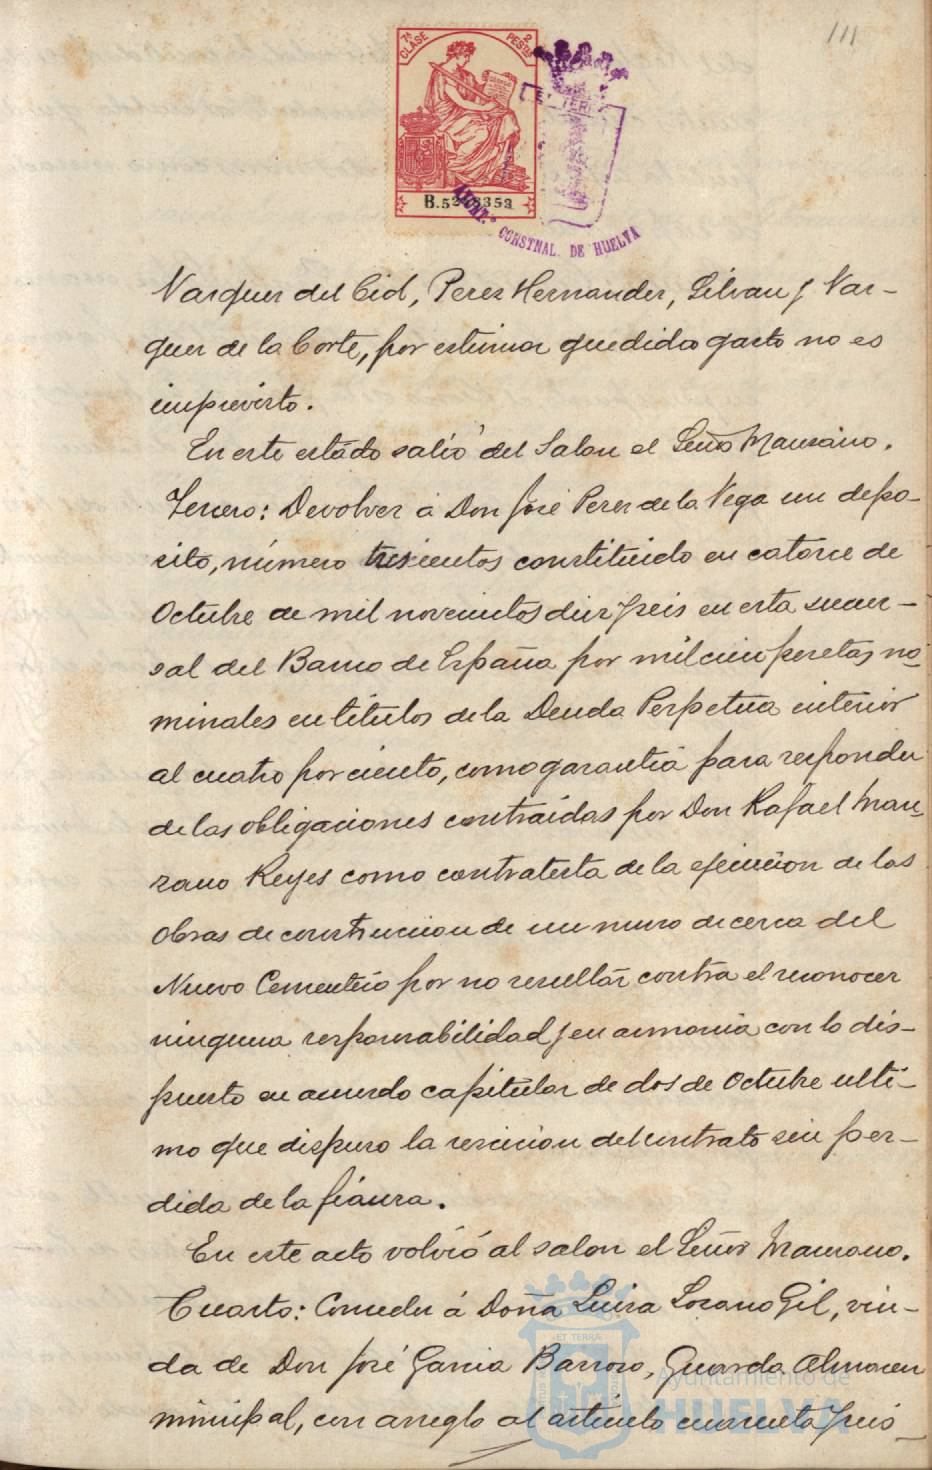 111
7ª CLASE 2 PESTAS
ET TERR
AYUNT.º CONSTNAL. DE HUELVA
Vazquez del Cid, Perez Hernandez, Gilvau y Vaz-
quez de la Corte, por estimar que dicho gasto no es
imprevisto.
En este estádo salió del Salon el Señor Manzano.
Tercero: Devolver á Don José Perez de la Vega un depó-
sito, número trescientos constituido en catorce de
Octubre de mil novecientos diez y seis en esta sucur-
sal del Banco de España por mil cien pesetas no-
minales en titulos de la Deuda Perpetua interior
al cuatro por ciento, como garantia para responder
de las obligaciones contraídas por Don Rafael Man-
zano Reyes como contratista de la ejecución de las
obras de construccion de un muro de cerca del
Nuevo Cementerio por no resultar contra el reconocer
ninguna responsabilidad y en armonia con lo dis-
puesto en acuerdo capitular de dos de Octubre ulti-
mo que dispuso la rescicion del contrato sin per-
dida de la fianza.
En este acto volvió al salon el Señor Manzano.
Cuarto: Conceder á Doña Luisa Lozano Gil, viu-
da de Don José Garcia Barroso, Guarda Almacen
municipal, con arreglo al articulo cuarenta y seis
ET TERRÆ
Ayuntamiento de
HUELVA